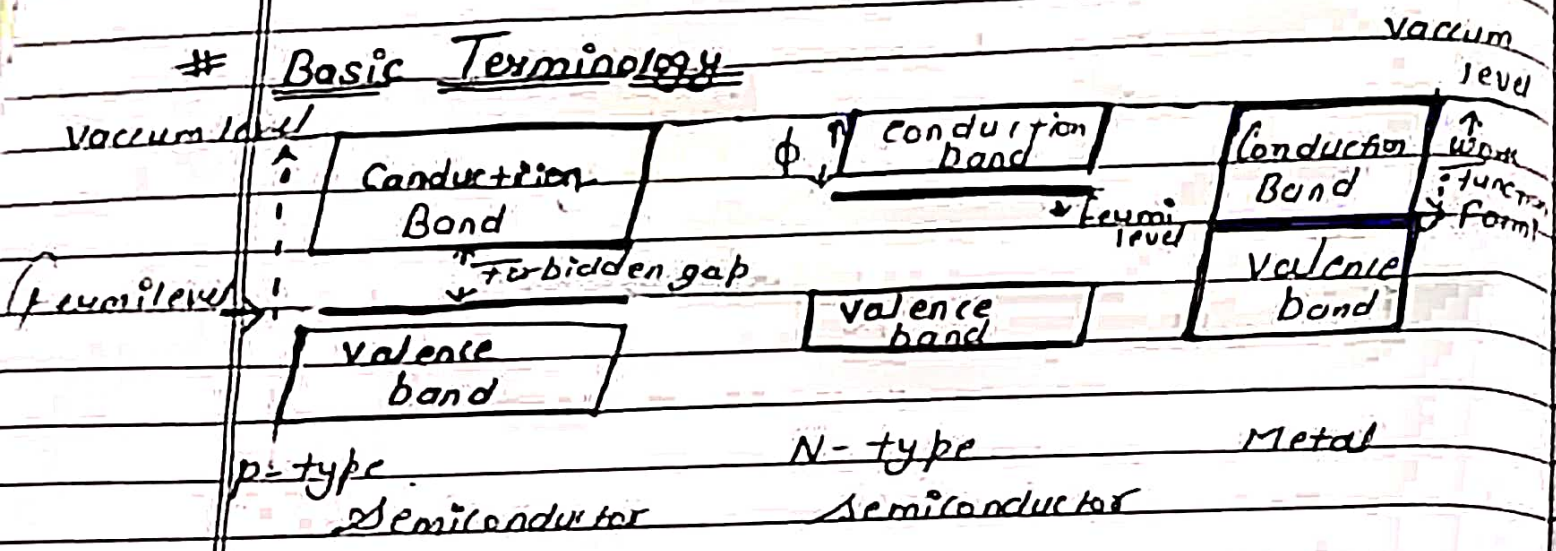 # Basic Terminology
Vaccum
level
Vaccum level
Canductiion
Band
ϕ
conduction
band
Conduction
Band
Work
function
Fermi
level
Fermi
Forbidden gap
Fermilevel
Valence
band
valence
band
Valence
band
p-type
Semiconductor
N-type
Semiconductor
Metal